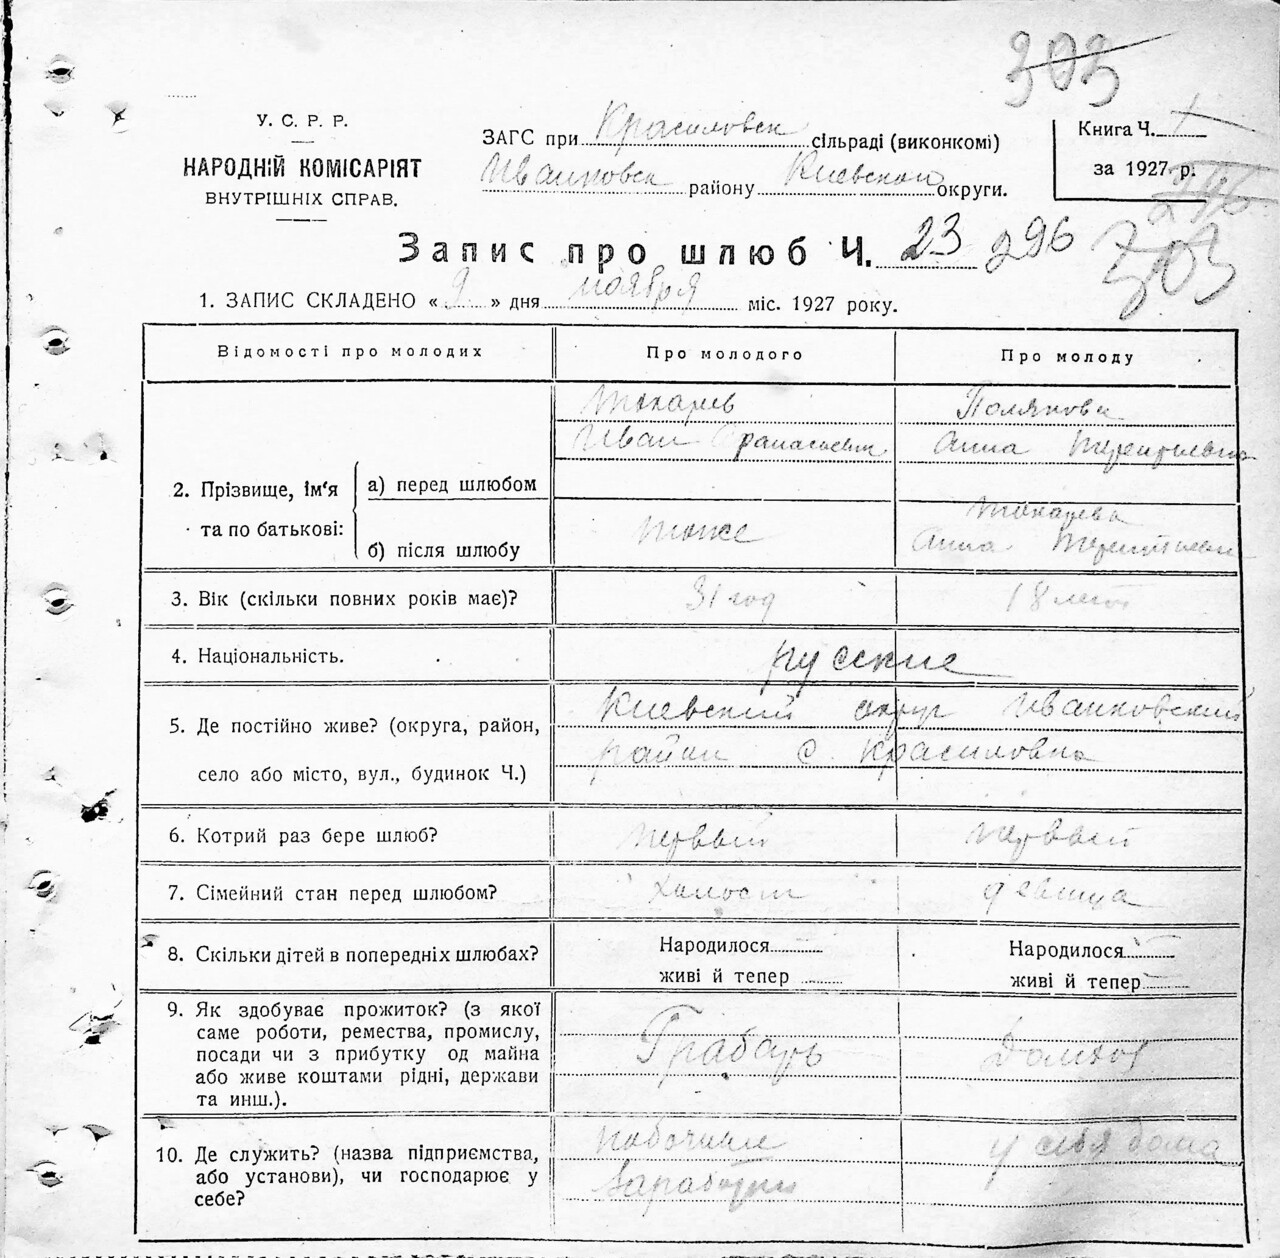 303
У. С. Р. Р.
НАРОДНІЙ КОМІСАРІЯТ
ВНУТРІШНІХ СПРАВ.
ЗАГС при Красиловск сільраді (виконкомі)
Иванковск району Киевского округи.
Книга Ч. 1
за 1927 р.
296
Запис про шлюб Ч. 23 296
303
1. ЗАПИС СКЛАДЕНО « 9 » дня ноября міс. 1927 року.
Відомості про молодих Про молодого Про молоду
Токарев Полякова
Иван Афанасьевич Анна Терентьевна
2. Прізвище, ім'я та по батькові:
а) перед шлюбом
б) після шлюбу
тоже Токарева
Анна Терентьевна
3. Вік (скільки повних років має)? 31 год 18 лет
4. Національність. русские
5. Де постійно живе? (округа, район, Киевский округ Иванковский
село або місто, вул., будинок Ч.) район с. Красиловка
6. Котрий раз бере шлюб? первый первый
7. Сімейний стан перед шлюбом? холост девица
8. Скільки дітей в попередніх шлюбах? Народилося Народилося
живі й тепер живі й тепер
9. Як здобуває прожиток? (з якої
саме роботи, ремества, промислу,
посади чи з прибутку од майна
або живе коштами рідні, держави
та инш.).
Грабарь Домхоз
10. Де служить? (назва підприємства,
або установи), чи господарює у
себе?
побочные у себя дома
заработки